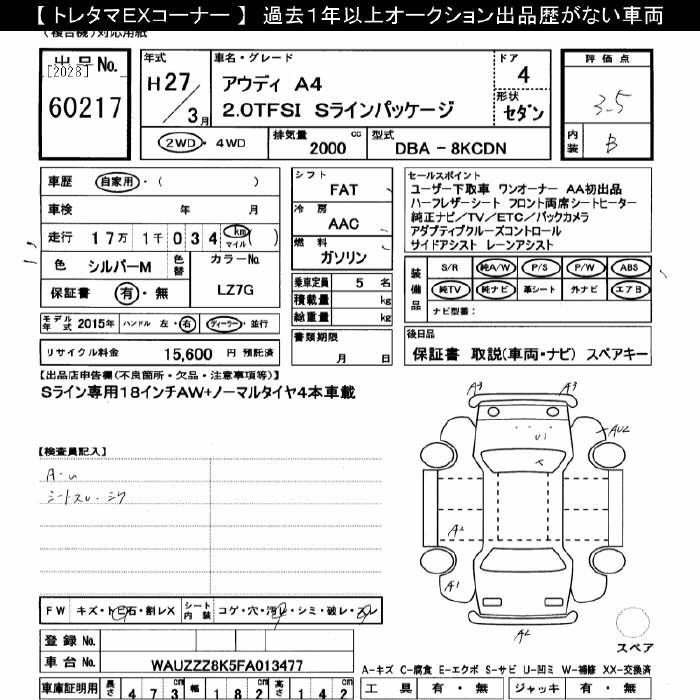 【 トレタマEXコーナー 】 過去1年以上オークション出品歴がない車両
(複合機)対応用紙
出品No.
[2028]
60217
年式
H27/3月
車名・グレード
アウディ A4
2.0TFSI Sラインパッケージ
ドア
4
形状
セダン
2WD・4WD
排気量 2000 cc
型式 DBA-8KCDN
評価点
3.5
内装 B
車歴 自家用・( )
車検 年 月
走行 17万 1千 0 3 4 km マイル ( )
色 シルバーM 色替
カラーNo. LZ7G
保証書 有・無
シフト FAT
冷房 AAC
燃料 ガソリン
乗車定員 5 名
積載量 kg
総重量 kg
セールスポイント
ユーザー下取車 ワンオーナー AA初出品
ハーフレザーシート フロント両席シートヒーター
純正ナビ/TV/ETC/バックカメラ
アダプティブクルーズコントロール
サイドアシスト レーンアシスト
装備品
S/R 純A/W P/S P/W ABS
純TV 純ナビ 革シート 外ナビ エアB
ナビ型番:
モデル年式 2015年 ハンドル 左・右 ディーラー・並行
書類期限
月 日
後日品
保証書 取説(車両・ナビ) スペアキー
リサイクル料金 15,600 円 預託済
【出品店申告欄(不良箇所・欠品・注意事項等)】
Sライン専用18インチAW+ノーマルタイヤ4本車載
【検査員記入】
A-u
シートスレ・シワ
A3 A3
AU2
U1
A2
A1
A2
スペア
FW キズ・トビ石・割レX
シート内装 コゲ・穴・汚レ・シミ・破レ・スレ
登録 No.
車台 No. WAUZZZ8K5FA013477
A-キズ C-腐食 E-エクボ S-サビ U-凹ミ W-補修 XX-交換済
車庫証明用 長さ 473cm 幅 182cm 高さ 142cm
工具 有・無 ジャッキ 有・無